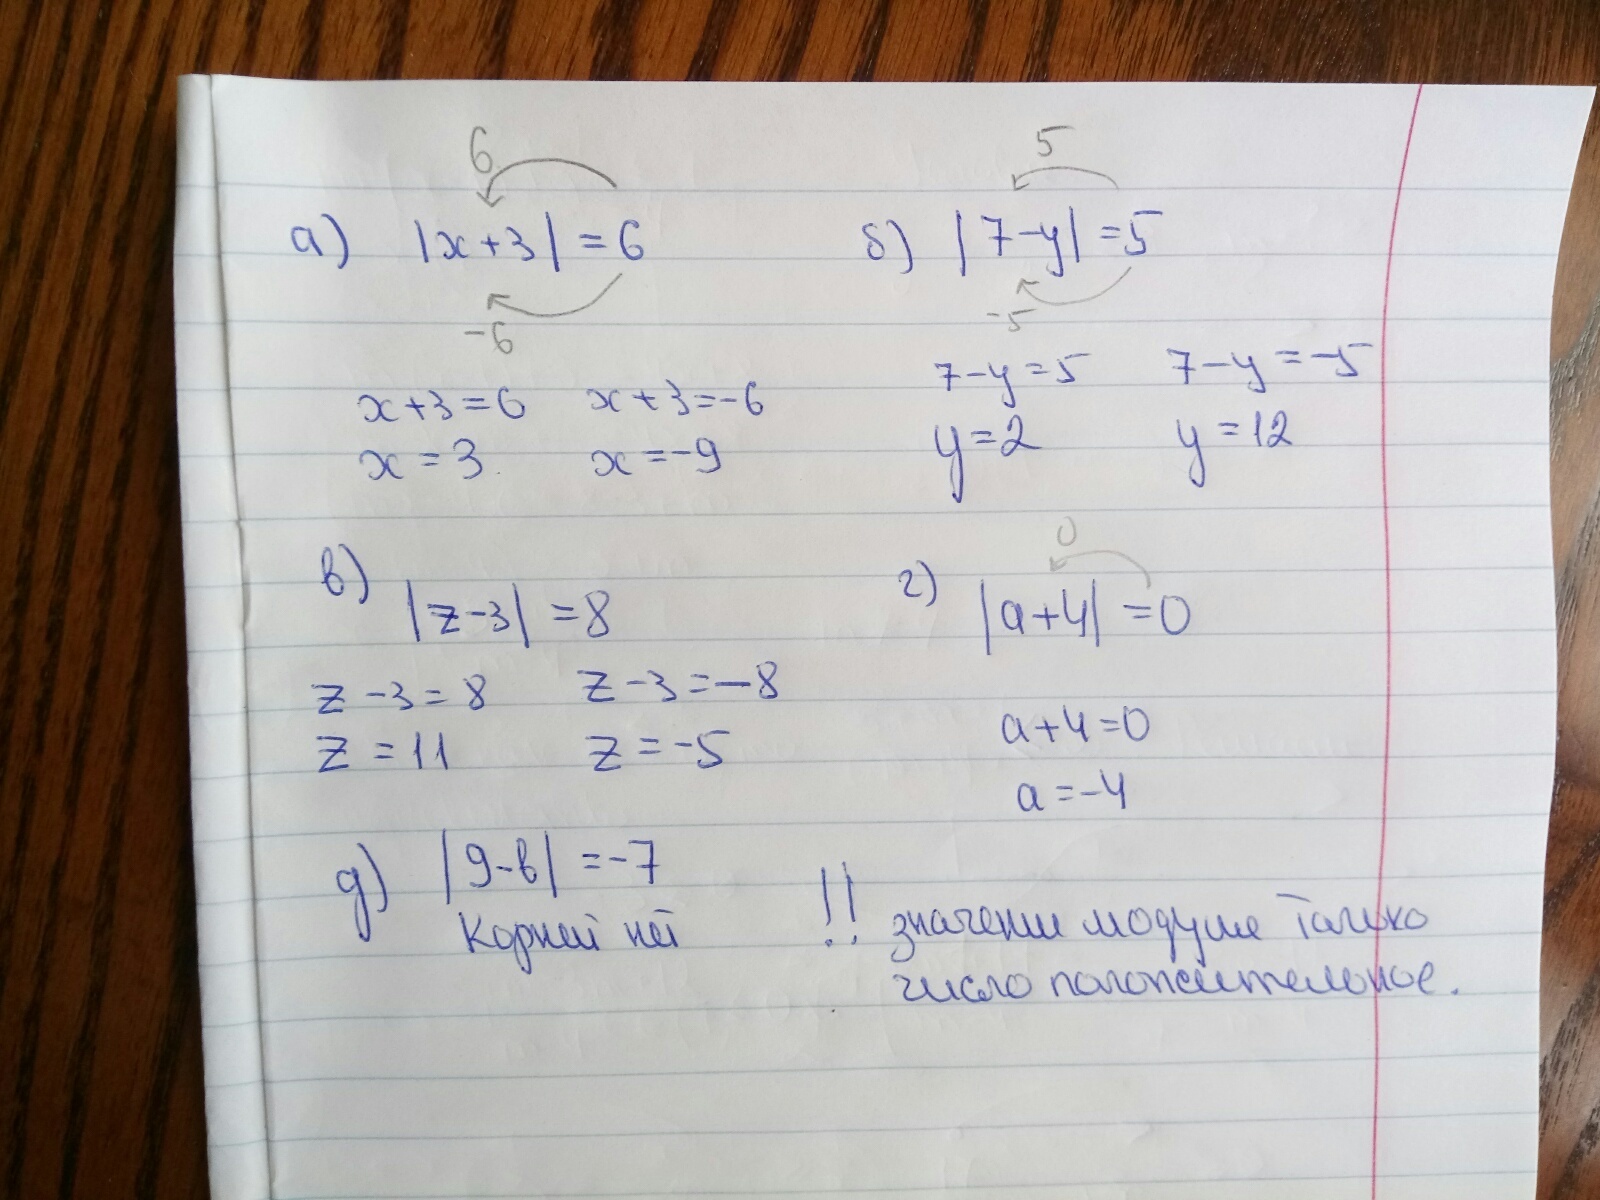 6
а) |x+3| = 6
-6
x+3=6 x+3=-6
x = 3. x = -9
5
б) |7-y| = 5
-5
7-y=5 7-y=-5
y=2 y=12
в) |z-3| = 8
z-3=8 z-3=-8
z=11 z=-5
0
г) |a+4| = 0
a+4=0
a=-4
д) |9-b| = -7
Корней нет
!! значение модуля только
число положительное.